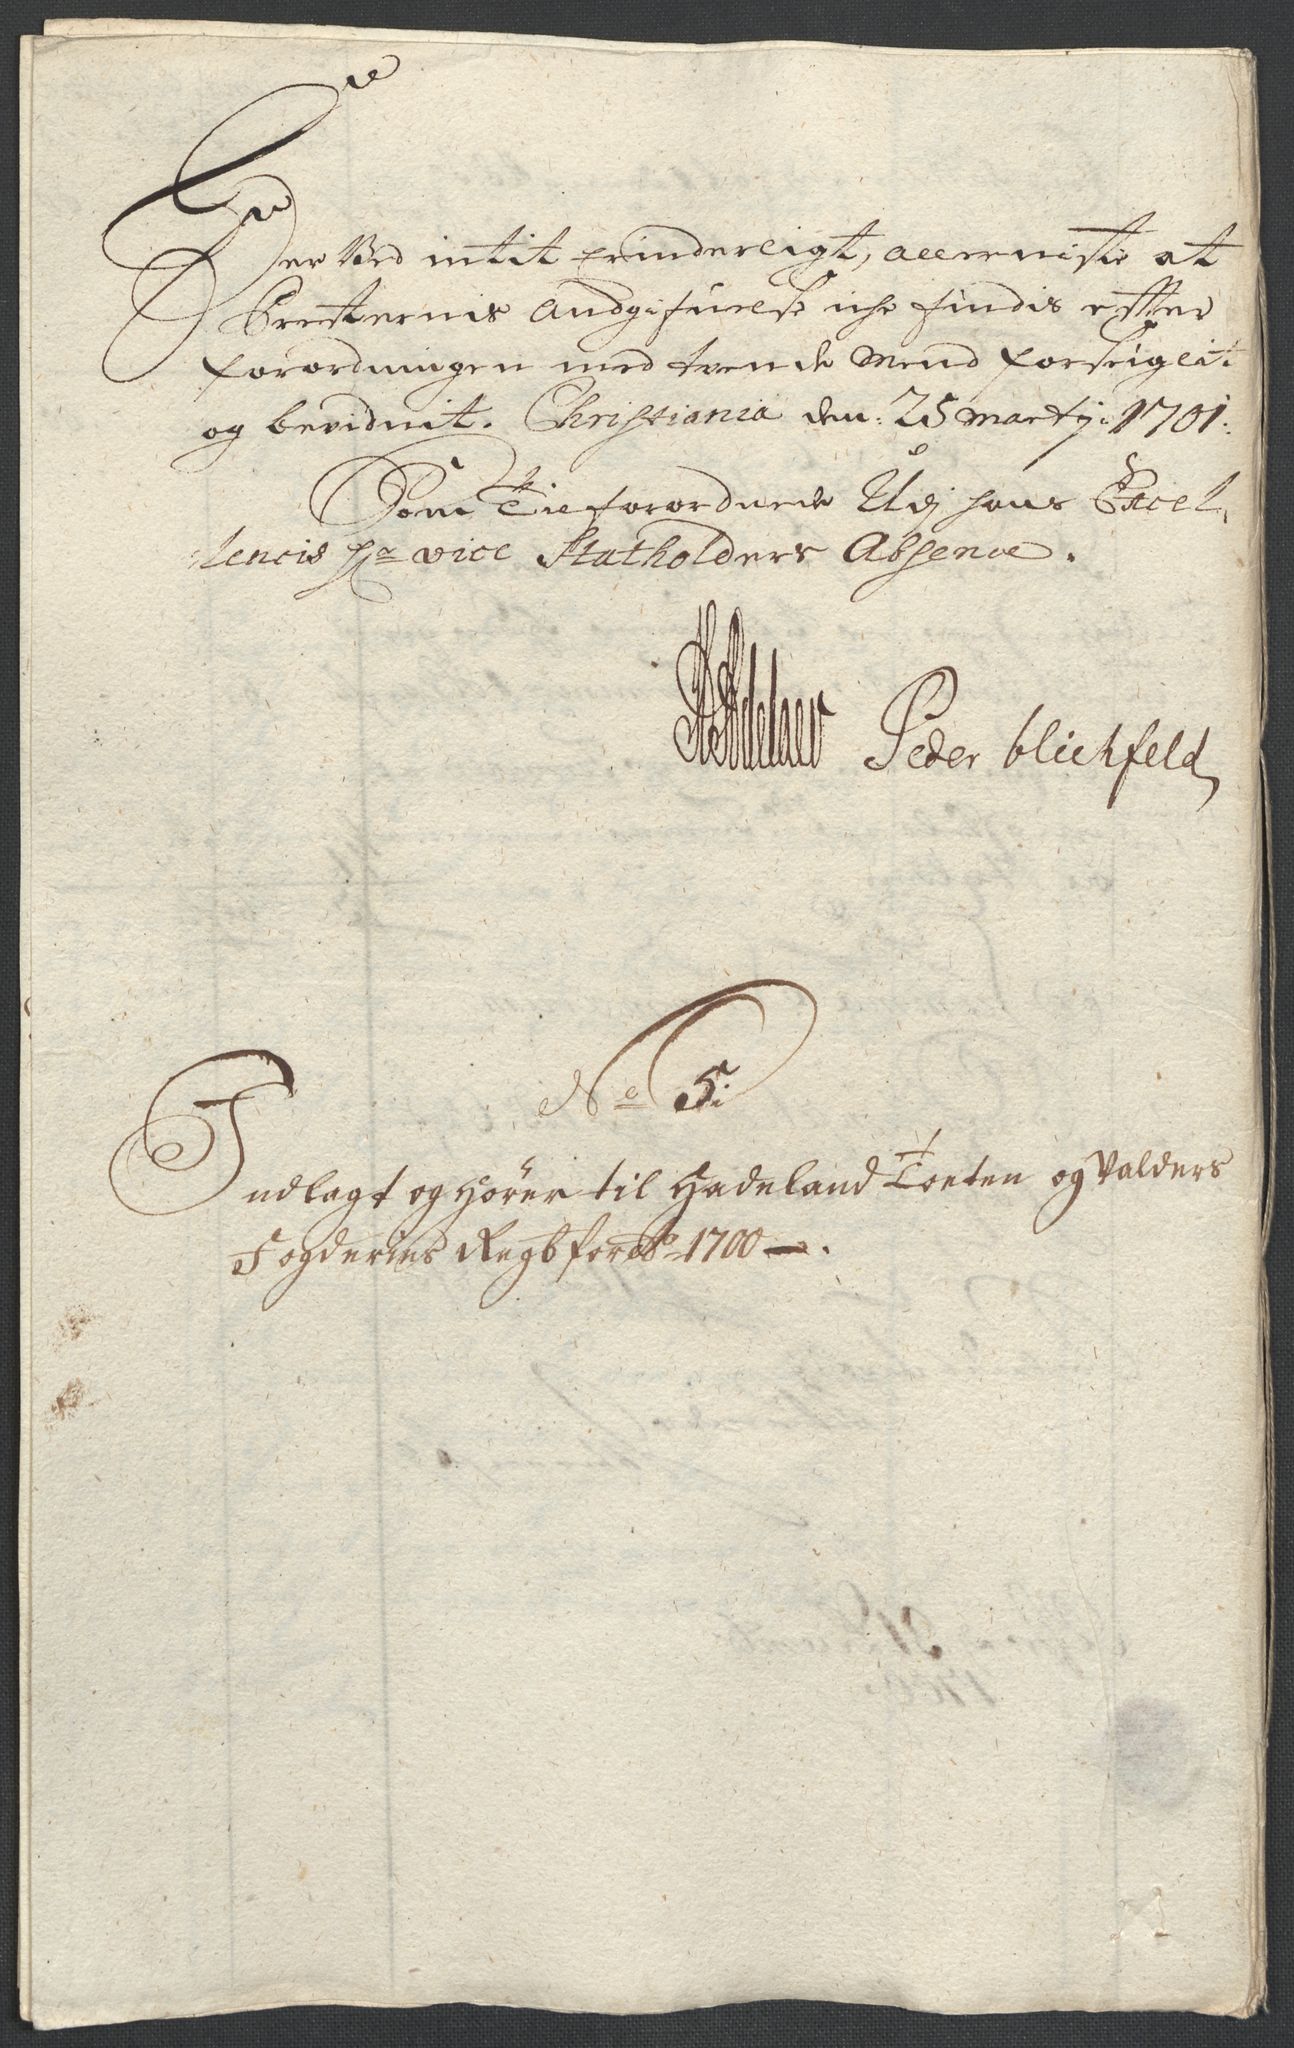 Der Ved intit Erinderligt, allerniste at
Presternis Andgifuelse iche findis efter
forordningen med tvende Mend forseiglit
og bevidnit. Christiania den: 25 Martij: 1701:
Som Tilforordnede Udj hans Excel,
lencis Hr vice Statholders Absence.
Adelaer Peder blichfeld
No 5:
Indlagt og hörer til Hadeland Toeten og Valders
Fogderies Regbs for Ao 1700